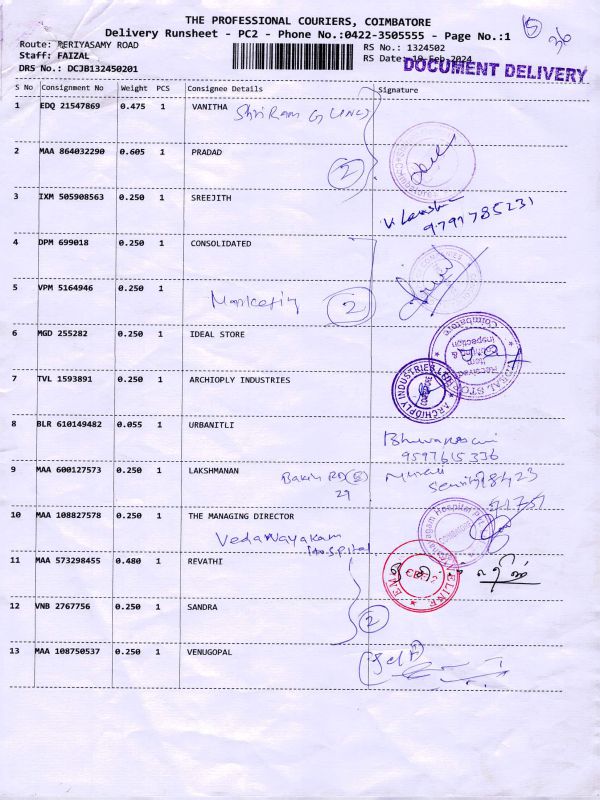 THE PROFESSIONAL COURIERS, COIMBATORE
Delivery Runsheet - PC2 - Phone No.:0422-3505555 - Page No.:1
Route: PERIYASAMY ROAD
RS No.: 1324502
Staff: FAIZAL
RS Date: 19-Feb-2024
DRS No.: DCJB132450201
DOCUMENT DELIVERY
S No Consignment No Weight PCS Consignee Details Signature
1 EDQ 21547869 0.475 1 VANITHA
2 MAA 864032290 0.605 1 PRADAD
2
3 IXM 505908563 0.250 1 SREEJITH
9791785231
4 DPM 699018 0.250 1 CONSOLIDATED
5 VPM 5164946 0.250 1
Marketing 2
6 MGD 255282 0.250 1 IDEAL STORE
7 TVL 1593891 0.250 1 ARCHIOPLY INDUSTRIES
ARCHIOPLY INDUSTRIES
8 BLR 610149482 0.055 1 URBANITLI
9597615336
9 MAA 600127573 0.250 1 LAKSHMANAN
29
10 MAA 108827578 0.250 1 THE MANAGING DIRECTOR
Vedanayakam
Hospital
11 MAA 573298455 0.480 1 REVATHI
12 VNB 2767756 0.250 1 SANDRA
2
13 MAA 108750537 0.250 1 VENUGOPAL
(self)